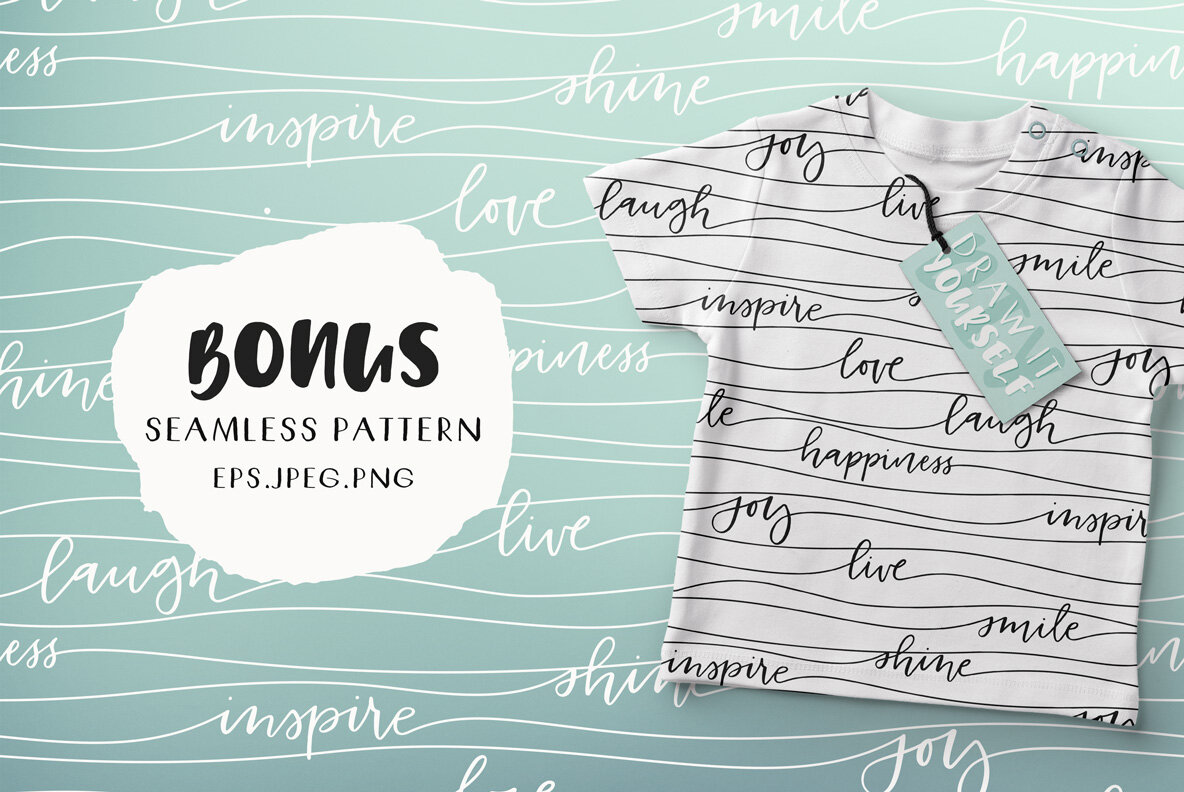 laugh
smile
happin
ess
shine
inspire
love
BONUS
SEAMLESS PATTERN
EPS.JPEG.PNG
hine
ppiness
live
laugh
ess
shin
inspire
love
joy
joy
insp
laugh
live
DRAW IT
YOURSELF
smile
inspire
love
joy
le
laugh
happiness
joy
inspir
live
smile
inspire
shine
joy